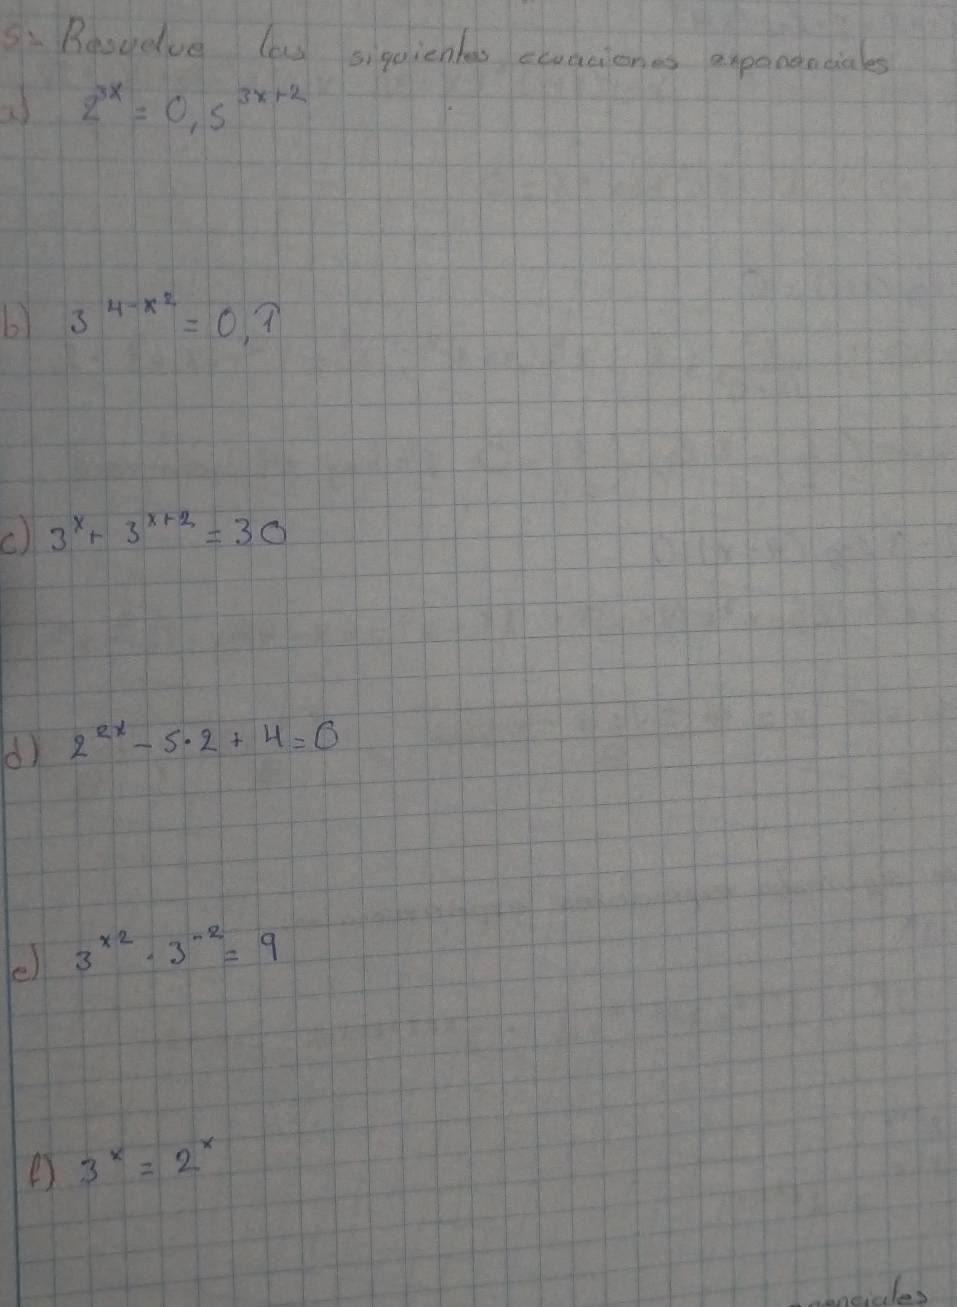 5- Resuelve las siguientes ecuaciones exponenciales
a) 2^3x = 0,5^3x+2
b) 3^4-x^2 = 0,1
c) 3^x + 3^x+2 = 30
d) 2^2x - 5·2 + 4 = 0
e) 3^x2 · 3^-2 = 9
f) 3^x = 2^x